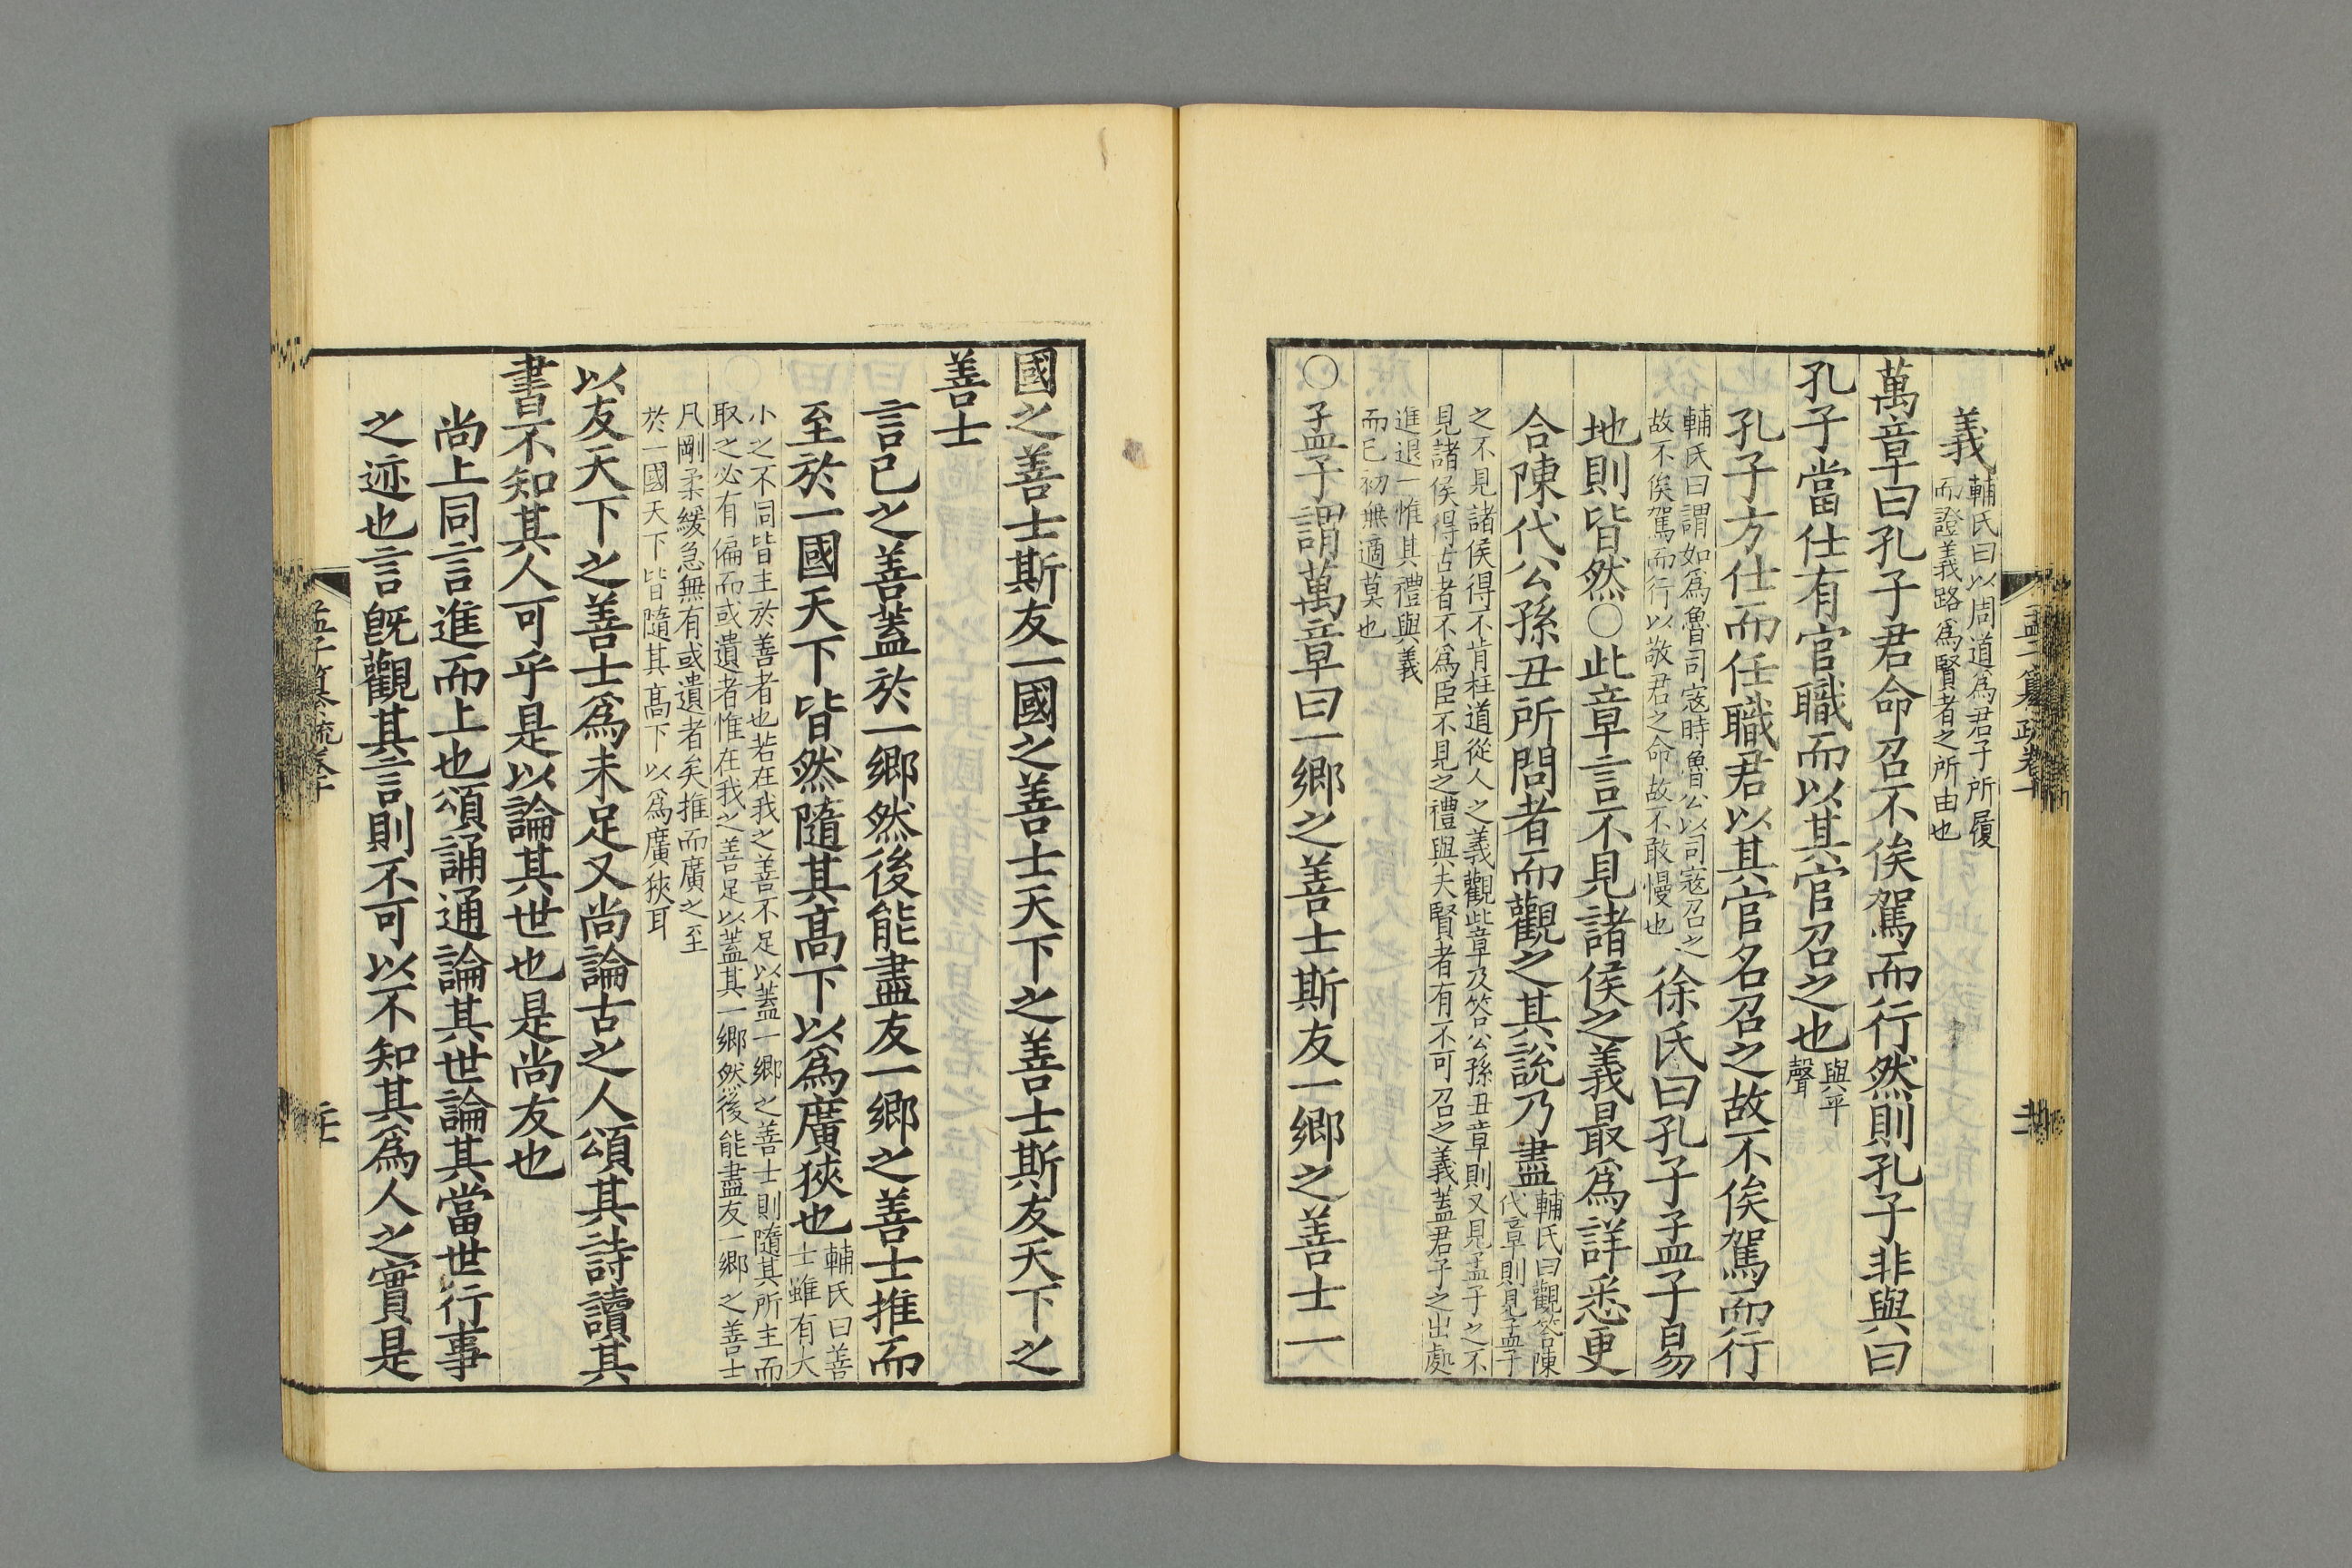 義輔氏曰以周道爲君子所履
而證義路爲賢者之所由也
萬章曰孔子君命召不俟駕而行然則孔子非與曰
孔子當仕有官職而以其官召之也與平
聲
孔子方仕而任職君以其官名召之故不俟駕而行
輔氏曰謂如爲魯司寇時魯公以司寇召之
故不俟駕而行以敬君之命故不敢慢也
徐氏曰孔子孟子易
地則皆然○此章言不見諸侯之義最爲詳悉更
合陳代公孫丑所問者而觀之其說乃盡輔氏曰觀答陳
代章則見孟子
之不見諸侯得不肯枉道從人之義觀此章及答公孫丑章則又見孟子之不
見諸侯得古者不爲臣不見之禮與夫賢者有不可召之義蓋君子之出處
進退一惟其禮與義
而已初無適莫也
○孟子謂萬章曰一鄉之善士斯友一鄉之善士一
國之善士斯友一國之善士天下之善士斯友天下之
善士
言己之善蓋於一鄉然後能盡友一鄉之善士推而
至於一國天下皆然隨其高下以爲廣狹也輔氏曰善
士雖有大
小之不同皆主於善者也若在我之善不足以蓋一鄉之善士則隨其所主而
取之必有偏而或遺者惟在我之善足以蓋其一鄉然後能盡友一鄉之善士
凡剛柔緩急無有或遺者矣推而廣之至
於一國天下皆隨其高下以爲廣狹耳
以友天下之善士爲未足又尚論古之人頌其詩讀其
書不知其人可乎是以論其世也是尚友也
尚上同言進而上也頌誦通論其世論其當世行事
之迹也言旣觀其言則不可以不知其爲人之實是
孟子纂疏卷十